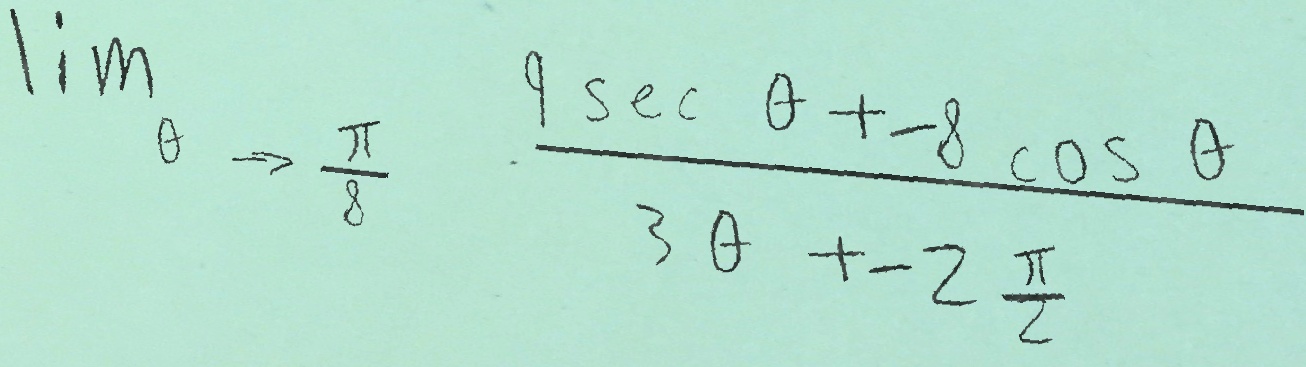 lim θ → π/8 (9 sec θ + -8 cos θ)/(3 θ + -2 π/2)